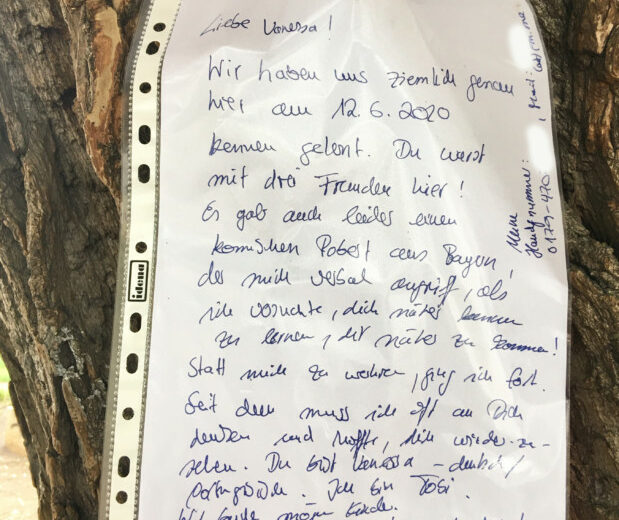 Liebe Vanessa!
Wir haben uns ziemlich genau
hier am 12.6.2020
kennen gelernt. Du warst
mit drei Freunden hier!
Es gab auch leider einen
komischen Robert aus Bayern,
der mich verbal angriff, als
ich versuchte, dich näher kennen
zu lernen, dir näher zu kommen!
Statt mich zu wehren, ging ich fort.
Seit dem muss ich oft an Dich
denken und hoffte, dich wieder zu-
sehen. Du bist Vanessa - deutsch/
portugiesisch. Ich bin Tobi.
Wir beide mögen
Meine
Handynummer:
0179-470
idena